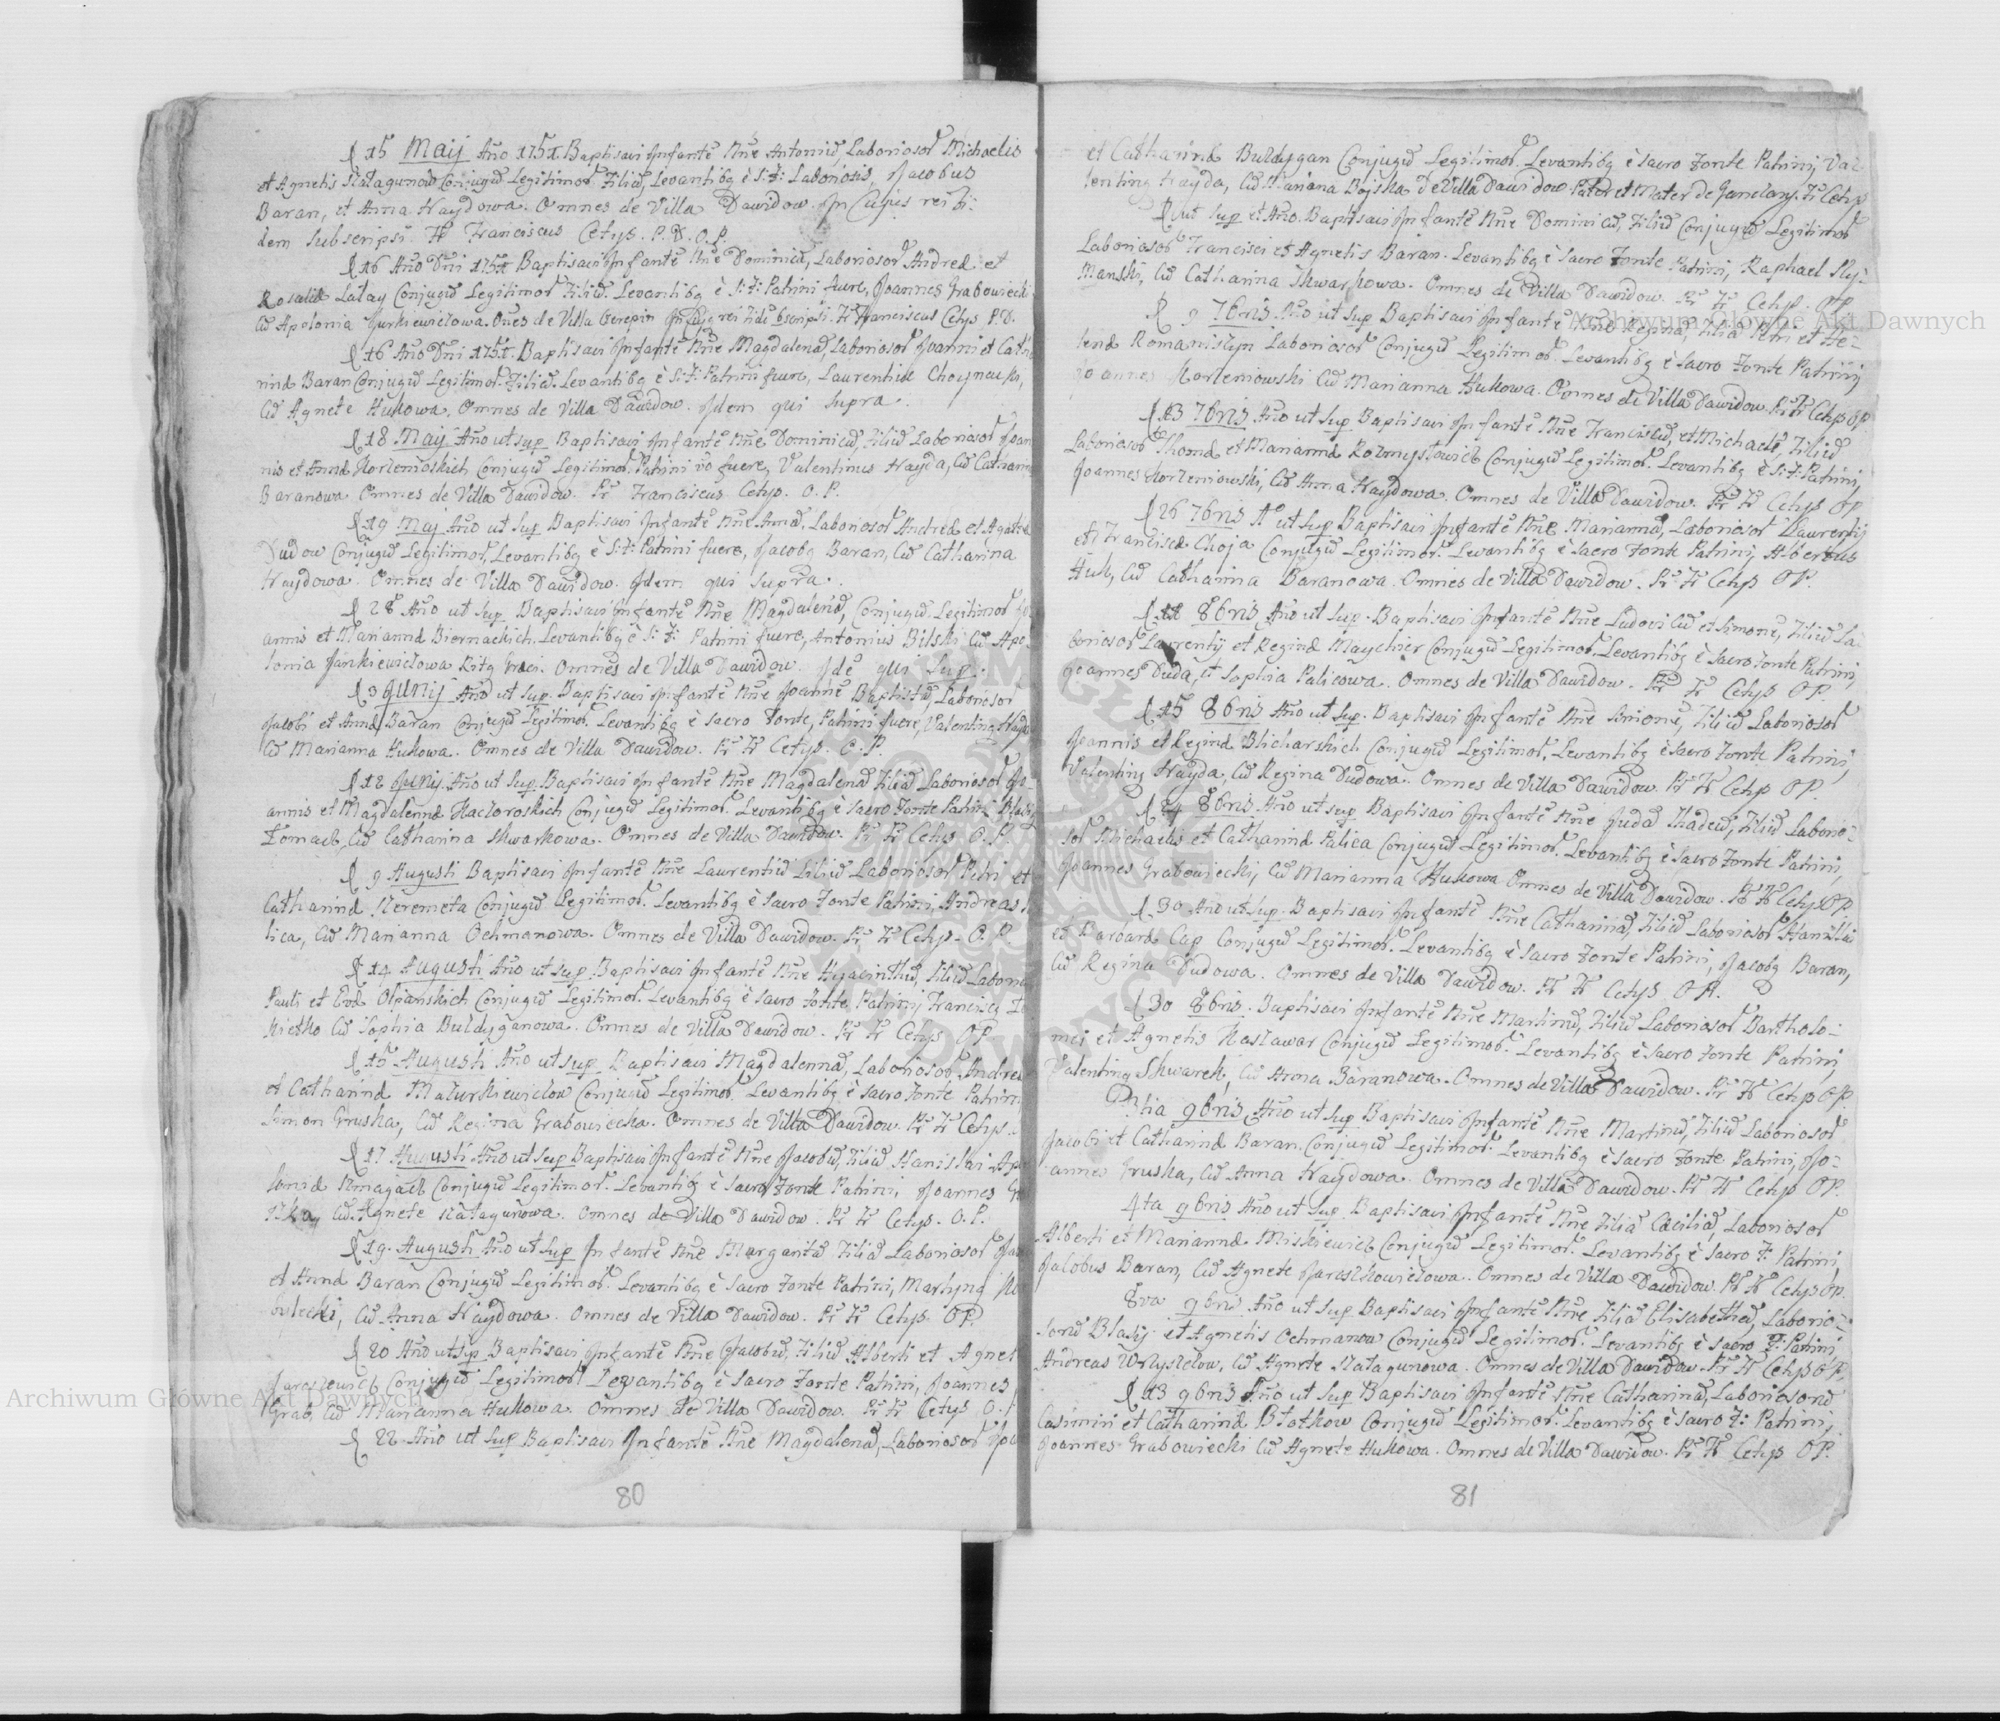 15 Maij Año 1751. Baptisavi Infantē Nñe Antoniū, Laboriosoꝝ Michaelis
et Agnetis Szałagunow Conjugū Legitimoꝝ Filiū, Levantibꝫ è S: F: Laboriosis, Jacobus
Baran, et Anna Haydowa. Omnes de Villa Dawidow. In Cujus rei fi:
dem subscripsi. Fr Franciscus Cetys. P. D. O. P.
16 Año Dñi 1751 Baptisavi Infantē Nñe Dominicū, Laboriosoꝝ Andreæ et
Rosaliæ Łatay Conjugū Legitimoꝝ Filiū. Levantibꝫ è S: F: Patrini fuere, Joannes Grabowiecki
Cū Apolonia Jurkiewiczowa. Oñes de Villa Czerepin In Cujꝫ rei Fidē sbscripsi. Fr Franciscus Cetys P. D.
16 Año Dñi 1751. Baptisavi Infantē Nñe Magdalenā, Laboriosoꝝ Joannis et Catha
rinæ Baran Conjugū Legitimoꝝ. Filiā. Levantibꝫ è S: F: Patrini fuere, Laurentius Choynacki,
Cū Agnete Hukowa, Omnes de Villa Dawidow. Idem qui supra.
18 Maij Año ut sup. Baptisavi Infantē Nñe Dominicū, Filiū Laboriosoꝝ Joan
nis et Annæ Korzenioskich Conjugū Legitimoꝝ. Patrini v̄o fuere, Valentinus Hayda, Cū Catharina
Baranowa Omnes de Villa Dawidow. Fr Franciscus Cetys. O. P.
19 Maj Año ut sup Baptisavi Infantē Nñe Annā, Laboriosoꝝ Andreæ et Agathæ
Dudow Conjugū Legitimoꝝ, Levantibꝫ è S: F: Patrini fuere, Jacobꝫ Baran, Cū Catharina
Haydowa. Omnes de Villa Dawidow. Idem qui supra.
28 Año ut sup Baptisavi Infantē Nñe Magdalenā, Conjugū Legitimoꝝ Jo
annis et Mariannæ Biernackich. Levantibꝫ è S: F: Patrini fuere, Antonius Bilski Cū Apo
lonia Jurkiewiczowa Ritꝫ Græci. Omnes de Villa Dawidow. Idē qui sup.
3 Junij Año ut sup. Baptisavi Infantē Nñe Joannē Baptistā, Laboriosoꝝ
Jacobi et Annæ Baran Conjugū Legitimoꝝ. Levantibꝫ è sacro Fonte, Patrini fuere, Valentinꝫ Hayda
Cū Marianna Hukowa. Omnes de Villa Dawidow. Fr Fr Cetys. O. P.
12 Junij. Año ut sup. Baptisavi Infantē Nñe Magdalenā Filiā Laboriosoꝝ Jo
annis et Magdalenæ Kaczoroskich Conjugū Legitimoꝝ. Levantibꝫ è sacro Fonte Patrini Blasiꝫ
Tomach, Cū Catharina Skwarkowa. Omnes de Villa Dawidow. Fr Fr Cetys O. P.
9 Augusti Baptisavi Infantē Nñe Laurentiū Filiū Laboriosoꝝ Petri et
Catharinæ Szeremeta Conjugū Legitimoꝝ. Levantibꝫ è sacro Fonte Patrini, Andreas
lica, Cū Marianna Ochmanowa. Omnes de Villa Dawidow. Fr Fr Cetys. O. P.
14 Augusti Año ut sup. Baptisavi Infantē Nñe Hyacinthū, Filiū Laborio
Pauli et Evæ Olszanskich Conjugū Legitimoꝝ. Levantibꝫ è sacro Fonte Patrinij Franciscꝫ
Cū Sophia Buldyganowa. Omnes de Villa Dawidow. Fr Fr Cetys OP.
15 Augusti Año ut sup. Baptisavi Magdalennā, Laboriosoꝝ Andreæ
et Catharinæ Mazurkiewiczow Conjugū Legitimoꝝ. Levantibꝫ è sacro Fonte Patrini
Simon Gruska, Cū Regina Grabowiecka. Omnes de Villa Dawidow. Fr Fr Cetys.
17 Augusti Año ut sup Baptisavi Infantē Nñe Jacobū, Filiū Stanislai Apo
loniæ Szmagach Conjugū Legitimoꝝ. Levantibꝫ è Sacro Fonte Patrini, Joannes Gru
szka, Cū Agnete Szałagunowa. Omnes de Villa Dawidow. Fr Fr Cetys. O. P.
19. Augusti Año ut sup Infantē Nñe Margaritā, Filiā Laboriosoꝝ
et Annæ Baran Conjugū Legitimoꝝ. Levantibꝫ è sacro Fonte Patrini, Martinꝫ
Cū Anna Haydowa. Omnes de Villa Dawidow. Fr Fr Cetys OP.
20 Año ut sup Baptisavi Infantē Nñe Jacobū, Filiū Alberti et Agnet
Conjugū Legitimoꝝ Levantibꝫ è Sacro Fonte Patrini, Joannes
Grab, Cū Marianna Hukowa. Omnes de Villa Dawidow. Fr Fr Cetys O. P.
22 Año ut sup Baptisavi Infantē Nñe Magdalenā, Laboriosoꝝ Joa
80
et Catharinæ Buldygan Conjugū Legitimoꝝ. Levantibꝫ è sacro Fonte Patrini, Va-
lentinꝫ Hayda, Cū Mariana Bojska de Villa Dawidow Pater et Mater de Fr Cetys
ut sup et Año. Baptisavi Infantē Nñe Dominicū, Filiū Conjugū Legitimoꝝ
Laboriosoꝝ Francisci et Agnetis Baran. Levantibꝫ è Sacro Fonte Patrini, Raphael Szy-
manski, Cū Catharina Skwarkowa. Omnes de Villa Dawidow. Fr Fr Cetys. OP
9 7bris Año ut sup Baptisavi Infantē Nñe Reginā, Filiā Petri et He-
lenæ Romaniszyn Laboriosoꝝ Conjugū Legitimoꝝ. Levantibꝫ è Sacro Fonte Patrinij
Joannes Korzeniowski Cū Marianna Hukowa. Omnes de Villa Dawidow. Fr Fr Cetys OP
13 7bris Año ut sup Baptisavi Infantē Nñe Franciscū, et Michaelē, Filiū
Laboriosoꝝ Thomæ et Mariannæ Rozmysłowich Conjugū Legitimoꝝ. Levantibꝫ è S: F: Patrini,
Joannes Korzeniowski, Cū Anna Haydowa. Omnes de Villa Dawidow. Fr Fr Cetys OP
26 7bris Aº ut sup Baptisavi Infantē Nñe Mariannā, Laboriosoꝝ Laurentij
et Franciscæ Choja Conjugū Legitimoꝝ. Levantibꝫ è sacro Fonte Patrini, Albertus
Huk, Cū Catharina Baranowa. Omnes de Villa Dawidow. Fr Fr Cetys OP.
8bris Año ut sup. Baptisavi Infantē Nñe Ludovicū et Simonē, Filiū La-
boriosoꝝ Laurentij et Reginæ Maycher Conjugū Legitimoꝝ. Levantibꝫ è Sacro Fonte Patrini,
Joannes Duda, et Sophia Palicowa. Omnes de Villa Dawidow. Fr Fr Cetys OP.
15 8bris Año ut sup. Baptisavi Infantē Nñe Simonē, Filiū Laboriosoꝝ
Joannis et Reginæ Blicharskich Conjugū Legitimoꝝ, Levantibꝫ è Sacro Fonte Patrini,
Valentinꝫ Hayda, Cū Regina Dudowa. Omnes de Villa Dawidow. Fr Fr Cetys OP.
24 8bris Año ut sup Baptisavi Infantē Nñe Judā Thadeū, Filiū Laborio-
soꝝ Michaelis et Catharinæ Palica Conjugū Legitimoꝝ. Levantibꝫ è Sacro Fonte Patrini,
Joannes Grabowiecki, Cū Marianna Hukowa Omnes de Villa Dawidow. Fr Fr Cetys OP
30 Año ut sup. Baptisavi Infantē Nñe Catharinā, Filiā Laboriosoꝝ Stanislai
et Barbaræ Cap Conjugū Legitimoꝝ. Levantibꝫ è Sacro Fonte Patrini, Jacobꝫ Baran,
Cū Regina Dudowa. Omnes de Villa Dawidow. Fr Fr Cetys OP.
30 8bris. Baptisavi Infantē Nñe Martinū, Filiū Laboriosoꝝ Bartholo-
mei et Agnetis Kaszlawar Conjugū Legitimoꝝ. Levantibꝫ è sacro Fonte Patrini,
Valentinꝫ Skwarek, Cū Anna Baranowa. Omnes de Villa Dawidow. Fr Fr Cetys OP.
9bris Año ut sup. Baptisavi Infantē Nñe Martinū, Filiū Laboriosoꝝ
Jacobi et Catharinæ Baran. Conjugū Legitimoꝝ. Levantibꝫ è Sacro Fonte Patrini, Jo-
annes Gruska, Cū Anna Haydowa. Omnes de Villa Dawidow. Fr Fr Cetys OP.
4ta 9bris Año ut sup Baptisavi Infantē Nñe Filiā Cæciliā, Laboriosoꝝ
Alberti et Mariannæ Miskiewich Conjugū Legitimoꝝ. Levantibꝫ è Sacro F: Patrini,
Jacobus Baran, Cū Agnete Jaroszkowiczowa. Omnes de Villa Dawidow. Fr Fr Cetys OP.
8va 9bris Año ut sup Baptisavi Infantē Nñe Filiā Elisabethā, Laborio-
sorū Blasij et Agnetis Ochmanow Conjugū Legitimoꝝ. Levantibꝫ è Sacro F: Patrini,
Andreas Cū Agnete Szałagunowa. Omnes de Villa Dawidow. Fr Fr Cetys OP.
13 9bris Año ut sup Baptisavi Infantē Nñe Catharinā, Laboriosorū
Casimiri et Catharinæ Błotkow Conjugū Legitimoꝝ. Levantibꝫ è Sacro F: Patrini,
Joannes Grabowiecki Cū Agnete Hukowa. Omnes de Villa Dawidow. Fr Fr Cetys OP.
81
Archiwum Główne Akt Dawnych
Archiwum Główne Akt Dawnych